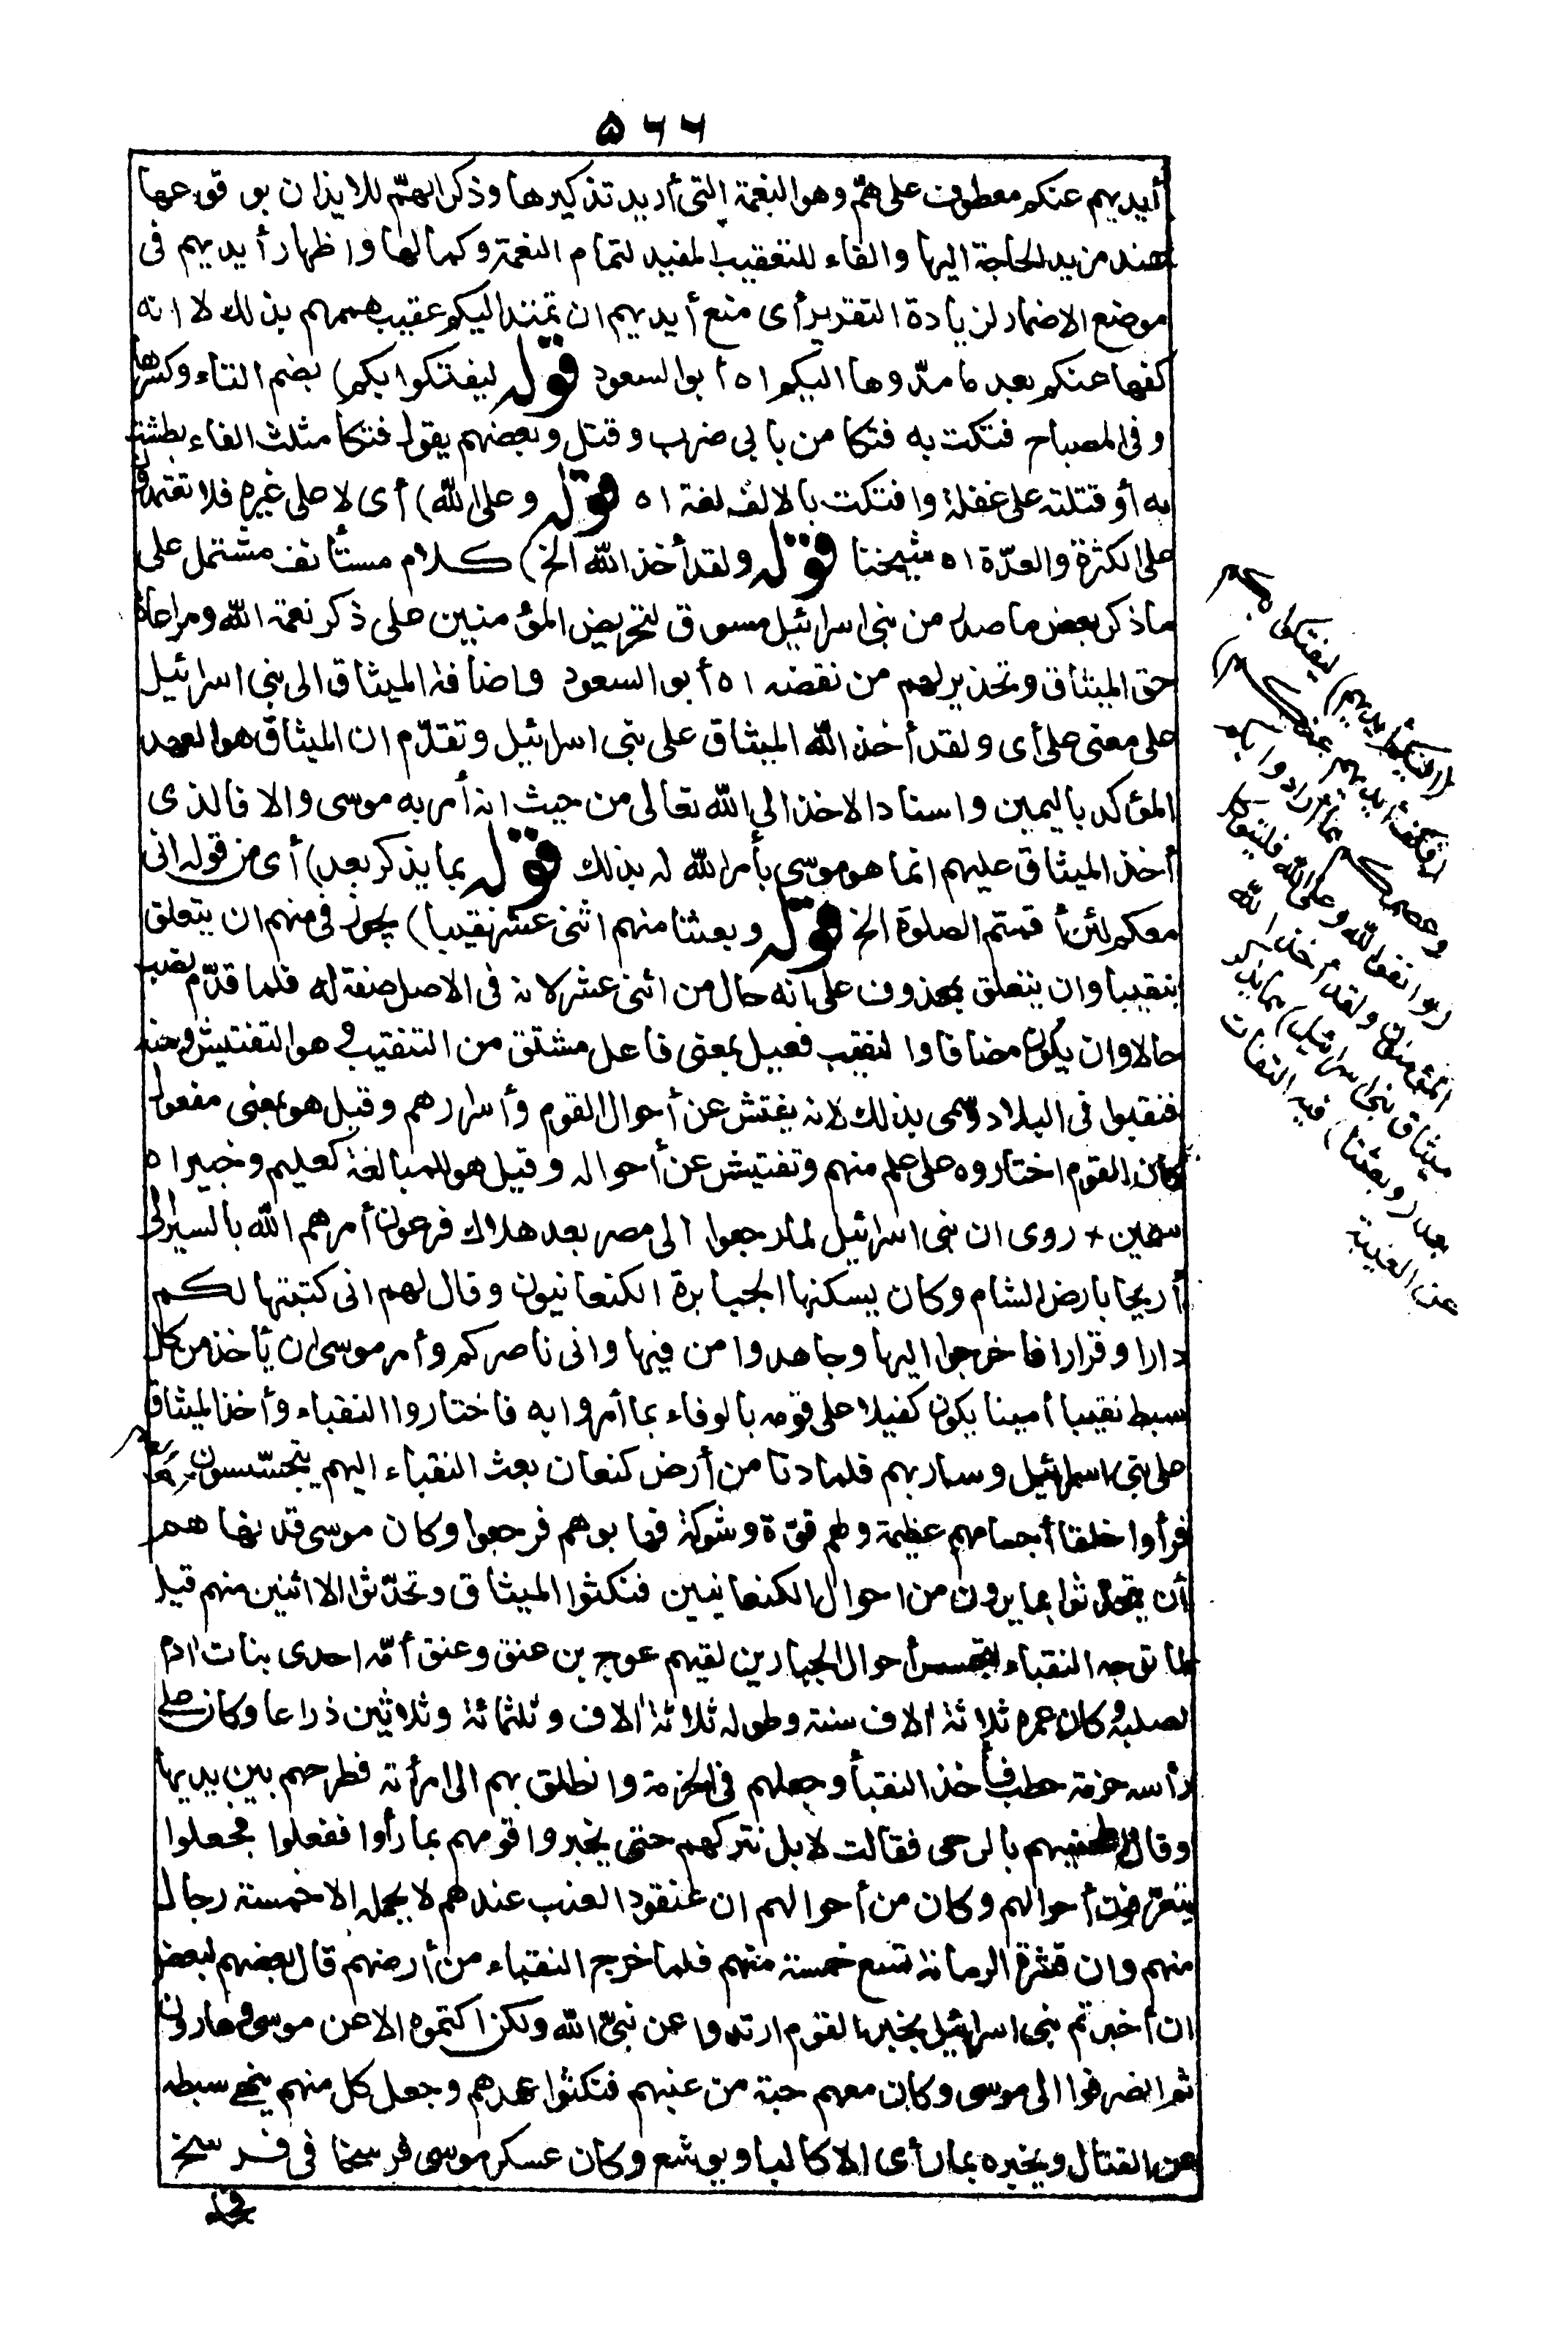 ٥٦٦
أيديهم عنكم معطوف على همّ وهو النعمة التى أريد تذكيرها وذكر الهمّ للايذان بوقوعها
عند مزيد الحاجة اليها والفاء للتعقيب المفيد لتمام النعمة وكمالها واظهار أيديهم فى
موضع الاضمار لزيادة التقدير أى منع أيديهم ان تمتد اليكم عقيب همهم بذلك لا انه
كفها عنكم بعد ما مدّوها اليكم ا ه أبو السعود قوله ليفتكوا بكم) بضم التاء وكسرها
وفى المصباح فتكت به فتكا من بابى ضرب وقتل وبعضهم يقول فتكا مثلث الفاء بطشت
به أو قتلته على غفلة وافتكت بالالف لغة ا ه قوله وعلى الله) أى لا على غيره فلا تعتمدوا
على الكثرة والعدّة ا ه شيخنا قوله ولقد أخذ الله الخ) كلام مستأنف مشتمل على
ما ذكر بعض ما صدر من بنى اسرائيل مسوق لتحريض المؤمنين على ذكر نعمة الله ومراعاة
حق الميثاق وتحذير لهم من نقضه ا ه أبو السعود واضافة الميثاق الى بنى اسرائيل
على معنى على أى ولقد أخذ الله الميثاق على بنى اسرائيل وتقدّم ان الميثاق هو العهد
المؤكد باليمين واسناد الاخذ الى الله تعالى من حيث انه أمر به موسى والا فالذى
أخذ الميثاق عليهم انما هو موسى بأمر الله له بذلك قوله بما يذكر بعد) أى من قوله انى
معكم لئن أقمتم الصلوة الخ قوله وبعثنا منهم اثنى عشر نقيبا) يجوز فى منهم ان يتعلق
بنقيبا وان يتعلق بمحذوف على انه حال من اثنى عشر لانه فى الاصل صفة له فلما قدّم نصب
حالا وان يكون مضافا والنقيب فعيل بمعنى فاعل مشتق من التنقيب وهو التفتيش ومنه
فنقبوا فى البلاد وسمى بذلك لانه يفتش عن أحوال القوم وأسرارهم وقيل هو بمعنى مفعول
كأن القوم اختاروه على علم منهم وتفتيش عن أحواله وقيل هو للمبالغة كعليم وخبير ا ه
سمين + روى ان بنى اسرائيل لما رجعوا الى مصر بعد هلاك فرعون أمرهم الله بالسير الى
أريحا بارض الشام وكان يسكنها الجبابرة الكنعانيون وقال لهم انى كتبتها لكم
دارا وقرارا فاخرجوا اليها وجاهدوا من فيها وانى ناصركم وأمر موسى ان يأخذ من كل
سبط نقيبا أمينا يكون كفيلا على قومه بالوفاء بما أمروا به فاختاروا النقباء وأخذ الميثاق
على بنى اسرائيل وسار بهم فلما دنا من أرض كنعان بعث النقباء اليهم يتجسّسون
فرأوا خلقا أجسامهم عظيمة ولهم قوّة وشوكة فهابوهم فرجعوا وكان موسى قد نهاهم
أن يتحدثوا بما يرون من احوال الكنعانيين فنكثوا الميثاق وتحدّثوا الا اثنين منهم قيل
لما توجه النقباء لتجسس أحوال الجبارين لقيهم عوج بن عنق وعنق أمّه احدى بنات ادم
لصلبه وكان عمره ثلاثة الاف سنة وطوله ثلاثة الاف وثلثمائة وثلاثين ذراعا وكان على
رأسه حزمة حطب فأخذ النقبأ وجعلهم فى الحزمة وانطلق بهم الى امرأته فطرحهم بين يديها
وقال اطحنيهم بالرحى فقالت لا بل نتركهم حتى يخبروا قومهم بما رأوا ففعلوا فجعلوا
يتعرّفون أحوالهم وكان من أحوالهم ان عنقود العنب عندهم لا يحمله الا خمسة رجال
منهم وان قشرة الرمانة تسع خمسة منهم فلما خرج النقباء من أرضهم قال بعضهم لبعض
ان أخبرتم بنى اسرائيل بخبر القوم ارتدوا عن نبىّ الله ولكن اكتموه الا عن موسى وهارون
ثم انصرفوا الى موسى وكان معهم حبة من عنبهم فنكثوا عهدهم وجعل كل منهم ينهى سبطه
عن القتال ويخبره بما رأى الا كالبا ويوشع وكان عسكر موسى فرسخا فى فرسخ
(اليكم أيديهم) ليفتكوا بكم
(فكف أيديهم عنكم)
وعصمكم مما أرادوا بكم
(واتقوا الله وعلى الله فليتوكل
المؤمنون ولقد أخذ الله
ميثاق بنى اسرائيل) بما يذكر
بعد (وبعثنا) فيه التفات
عن الغيبة